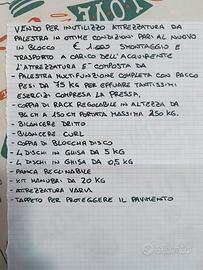 VENDO PER INUTILIZZO ATTREZZATURA DA
PALESTRA IN OTTIME CONDIZIONI PARI AL NUOVO
IN BLOCCO € 1.000 SMONTAGGIO E
TRASPORTO A CARICO DELL'ACQUIRENTE
L'ATTREZZATURA E' COMPOSTA DA
- PALESTRA MULTIFUNZIONE COMPLETA CON PACCO
PESI DA 75 KG PER EFFUARE TANTISSIMI
ESERCIZI COMPRESA LA PRESSA,
- COPPIA DI RACK REGOLABILE IN ALTEZZA DA
96 CM A 150 CM PORTATA MASSIMA 250 KG.
- BILANCERE DRITTO
- BILANCERE CURL
- COPPIA DI BLOCCHI A DISCO
- 4 DISCHI IN GHISA DA 5 KG
- 4 DISCHI IN GHISA DA 0,5 KG
- PANCA RECLINABILE
- KIT MANUBRI DA 20 KG
- ATTREZZATURA VARIA
- TAPPETO PER PROTEGGERE IL PAVIMENTO
subito